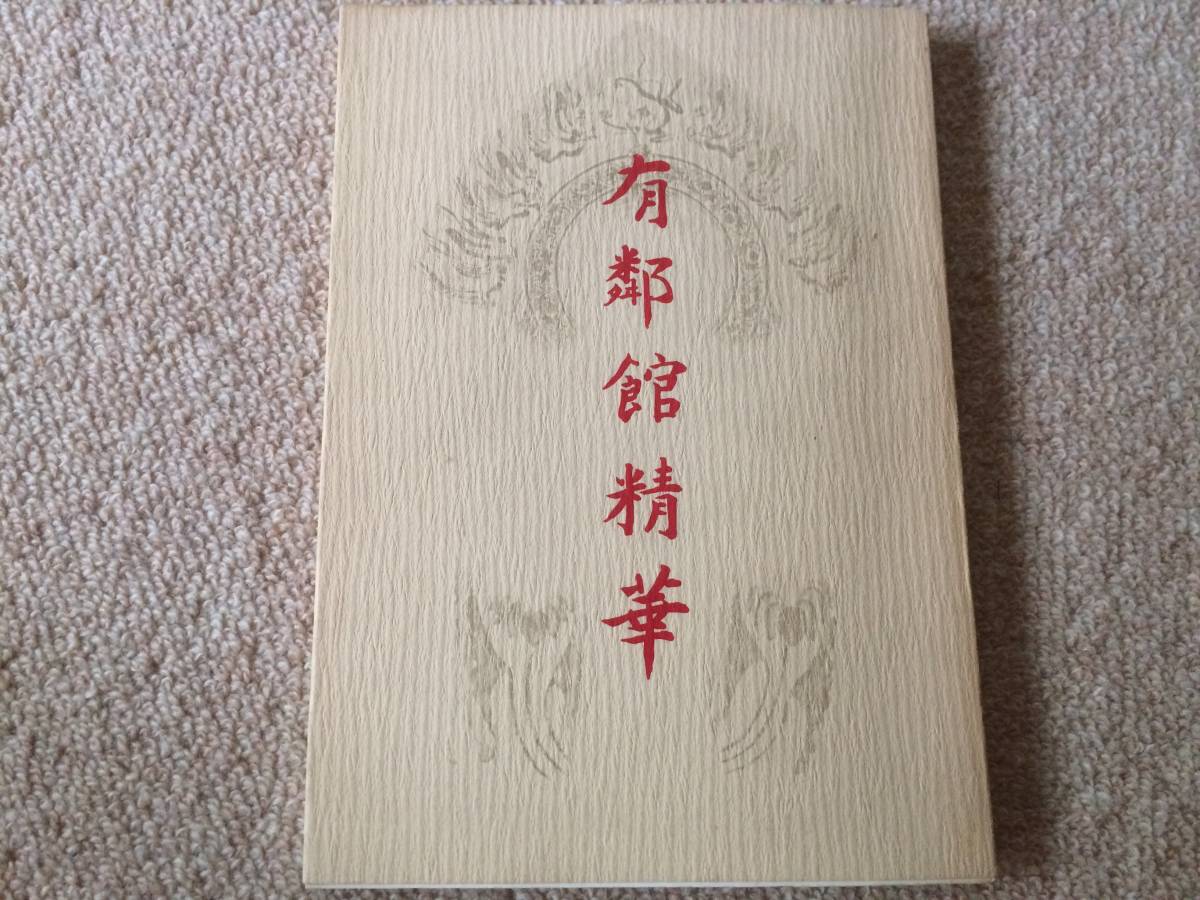 有鄰館精華